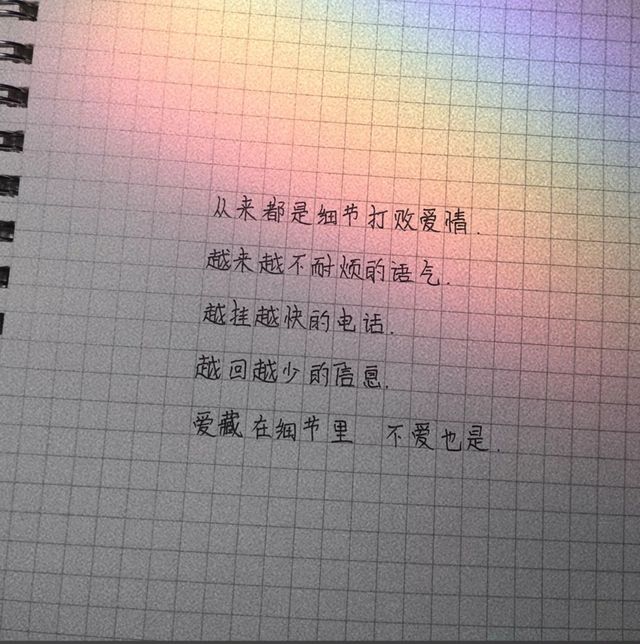 从来都是细节打败爱情.
越来越不耐烦的语气.
越挂越快的电话.
越回越少的信息.
爱藏在细节里 不爱也是.